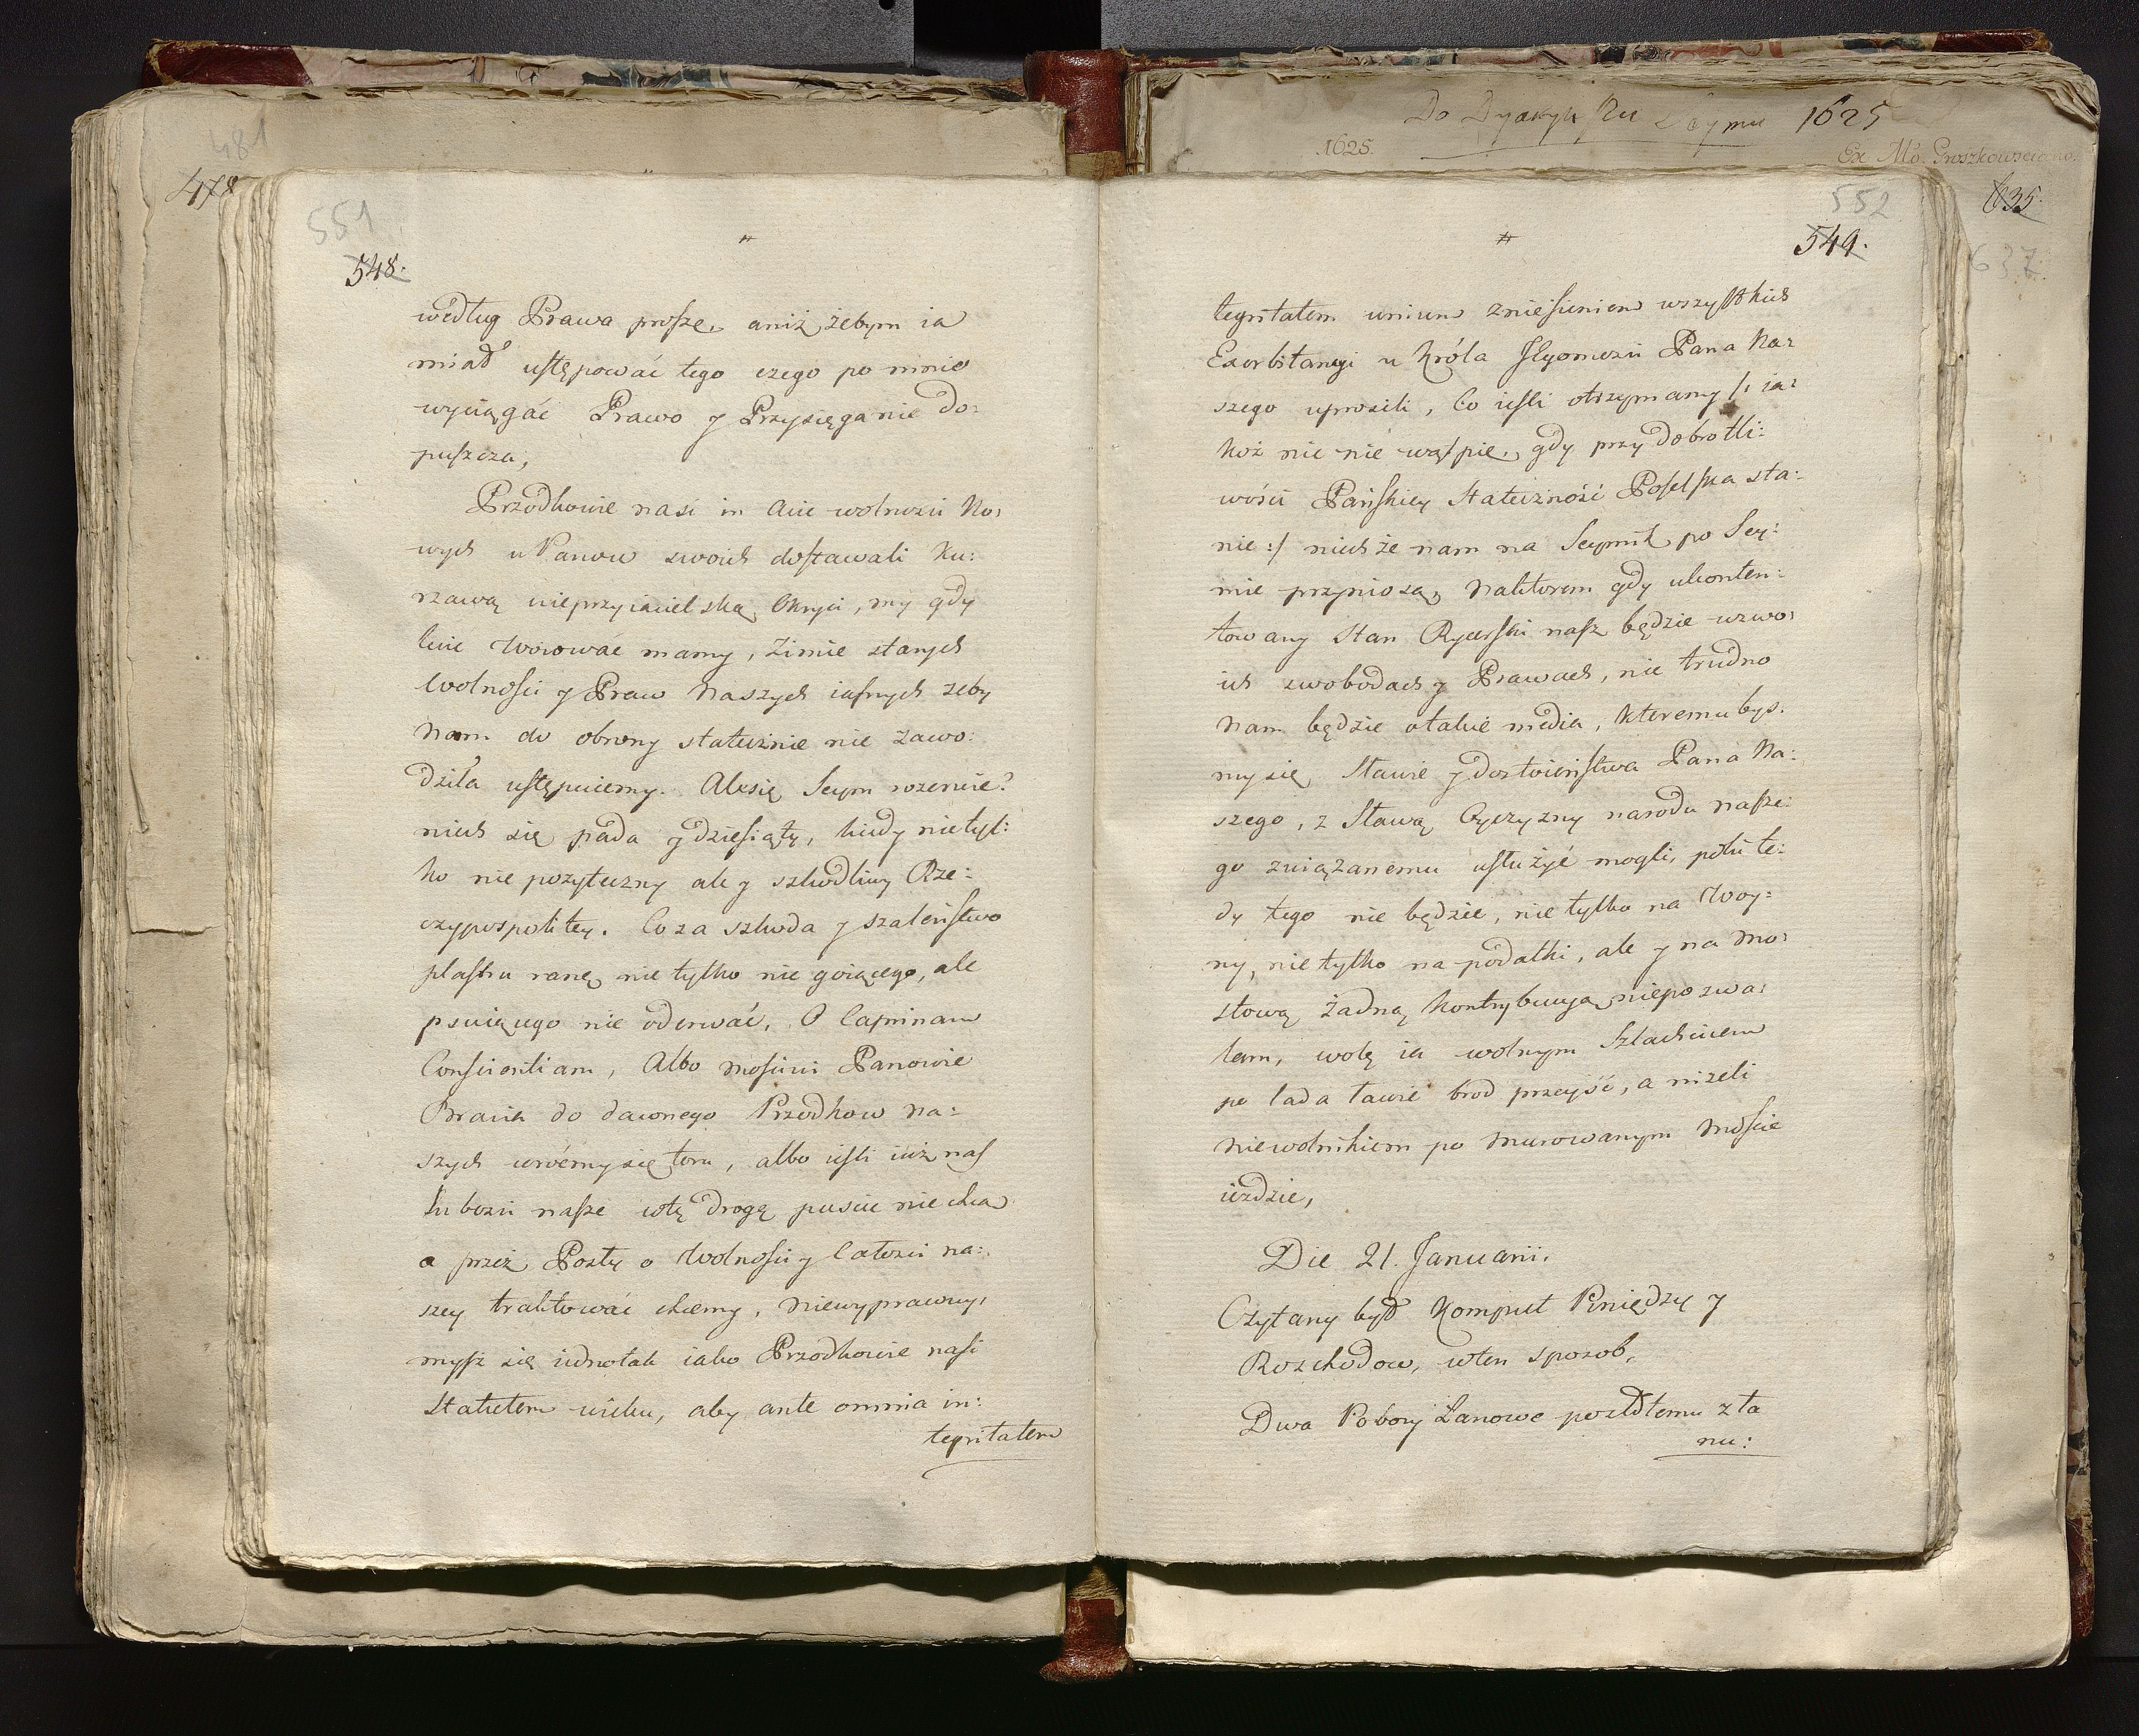 481
478
551
548.
według Prawa proszę, aniż żebym ia
miał ustępować tego czego po mnie
wyciągać Prawo y Przysięga nie do:
puszcza,
Przodkowie nasi in Acie wolności No:
wych u Panow swoich dostawali Ku:
rzawą nieprzyiacielską Okryci, my gdy
lecie Woiować mamy, Zimie starych
Wolności y Praw Naszych iasnych zeby
Nam do obrony statecznie nie zawo:
dziła ustępuiemy. Alesię Seym rozerwie?
niech się pada y dziesiąty, kiedy nietyl:
ko nie pozyteczny ale y szkodliwy Rze:
czypospolitey. Co za szkoda y szaleństwo
plastru ranę nie tylko nie goiącego, ale
psuiącego nie oderwać,
Conscientiam, Albo Mosciwi Panowie
Bracia do dawnego Przodkow na:
szych wróćmy się toru, albo iesli iuż nas
w tę drogę puscić nie chca
a przez Posły o Wolności y całosci na:
szey traktować chcemy, Niewyprawuy:
mysz się iednotak iako Przodkowie nasi
Statutem wieku, aby ante omnia in:
tegritatem
Do Dyaryuszu Seymu 1625
1625.
Ex Mo. Proszkowsciano.
635.
637.
552
549.
tegritatem unium zniesieniem wszystkich
Exorbitancyi u Króla Jegomosci Pana Na:
szego uprosili, Co iesli otrzymamy /: ia:
koż nic nie wątpie, gdy przy dobrotli:
wości Pańskiey Stateczność Poselska sta:
nie :/ niech że nam na Seymik po Sey:
mie przyniosą, Naktorem gdy ukonten:
towany Stan Rycerski nasz będzie wswo:
ich swobodach y Prawach, nie trudno
Nam będzie o takie media, któremu bys:
my się Sławie y dostoieństwa Pana Na:
szego, z Sławą Oyczyzny narodu nasze:
go związanemu usłużyć mogli, póki te:
dy tego nie będzie, nie tylko na Woy:
ny, nie tylko na podatki, ale y na Mo:
stową żadną Kontrybucyą niepozwa:
lam, wolę ia wolnym Szlachcicem
po lada ławie brod przeyść, a niżeli
Niewolnikiem po Murowanym Moście
ieździe,
Die 21. Januarii.
Czytany był Komput Pieniędzy y
Rozchodow, wten sposob,
Dwa Pobory Łanowe poszłtemu z ła
nu: